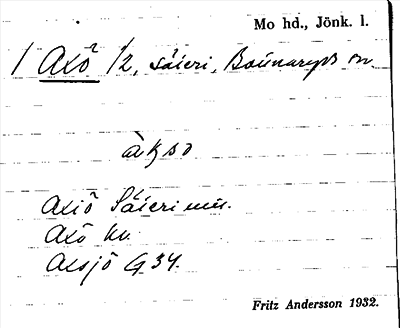 Mo hd., Jönk. l.
/ Axö 1/2, säteri, Bosnaryds sn
àksö
Axiö Säteri mtl.
Axö kv.
Axsjö G 34.
Fritz Andersson 1932.